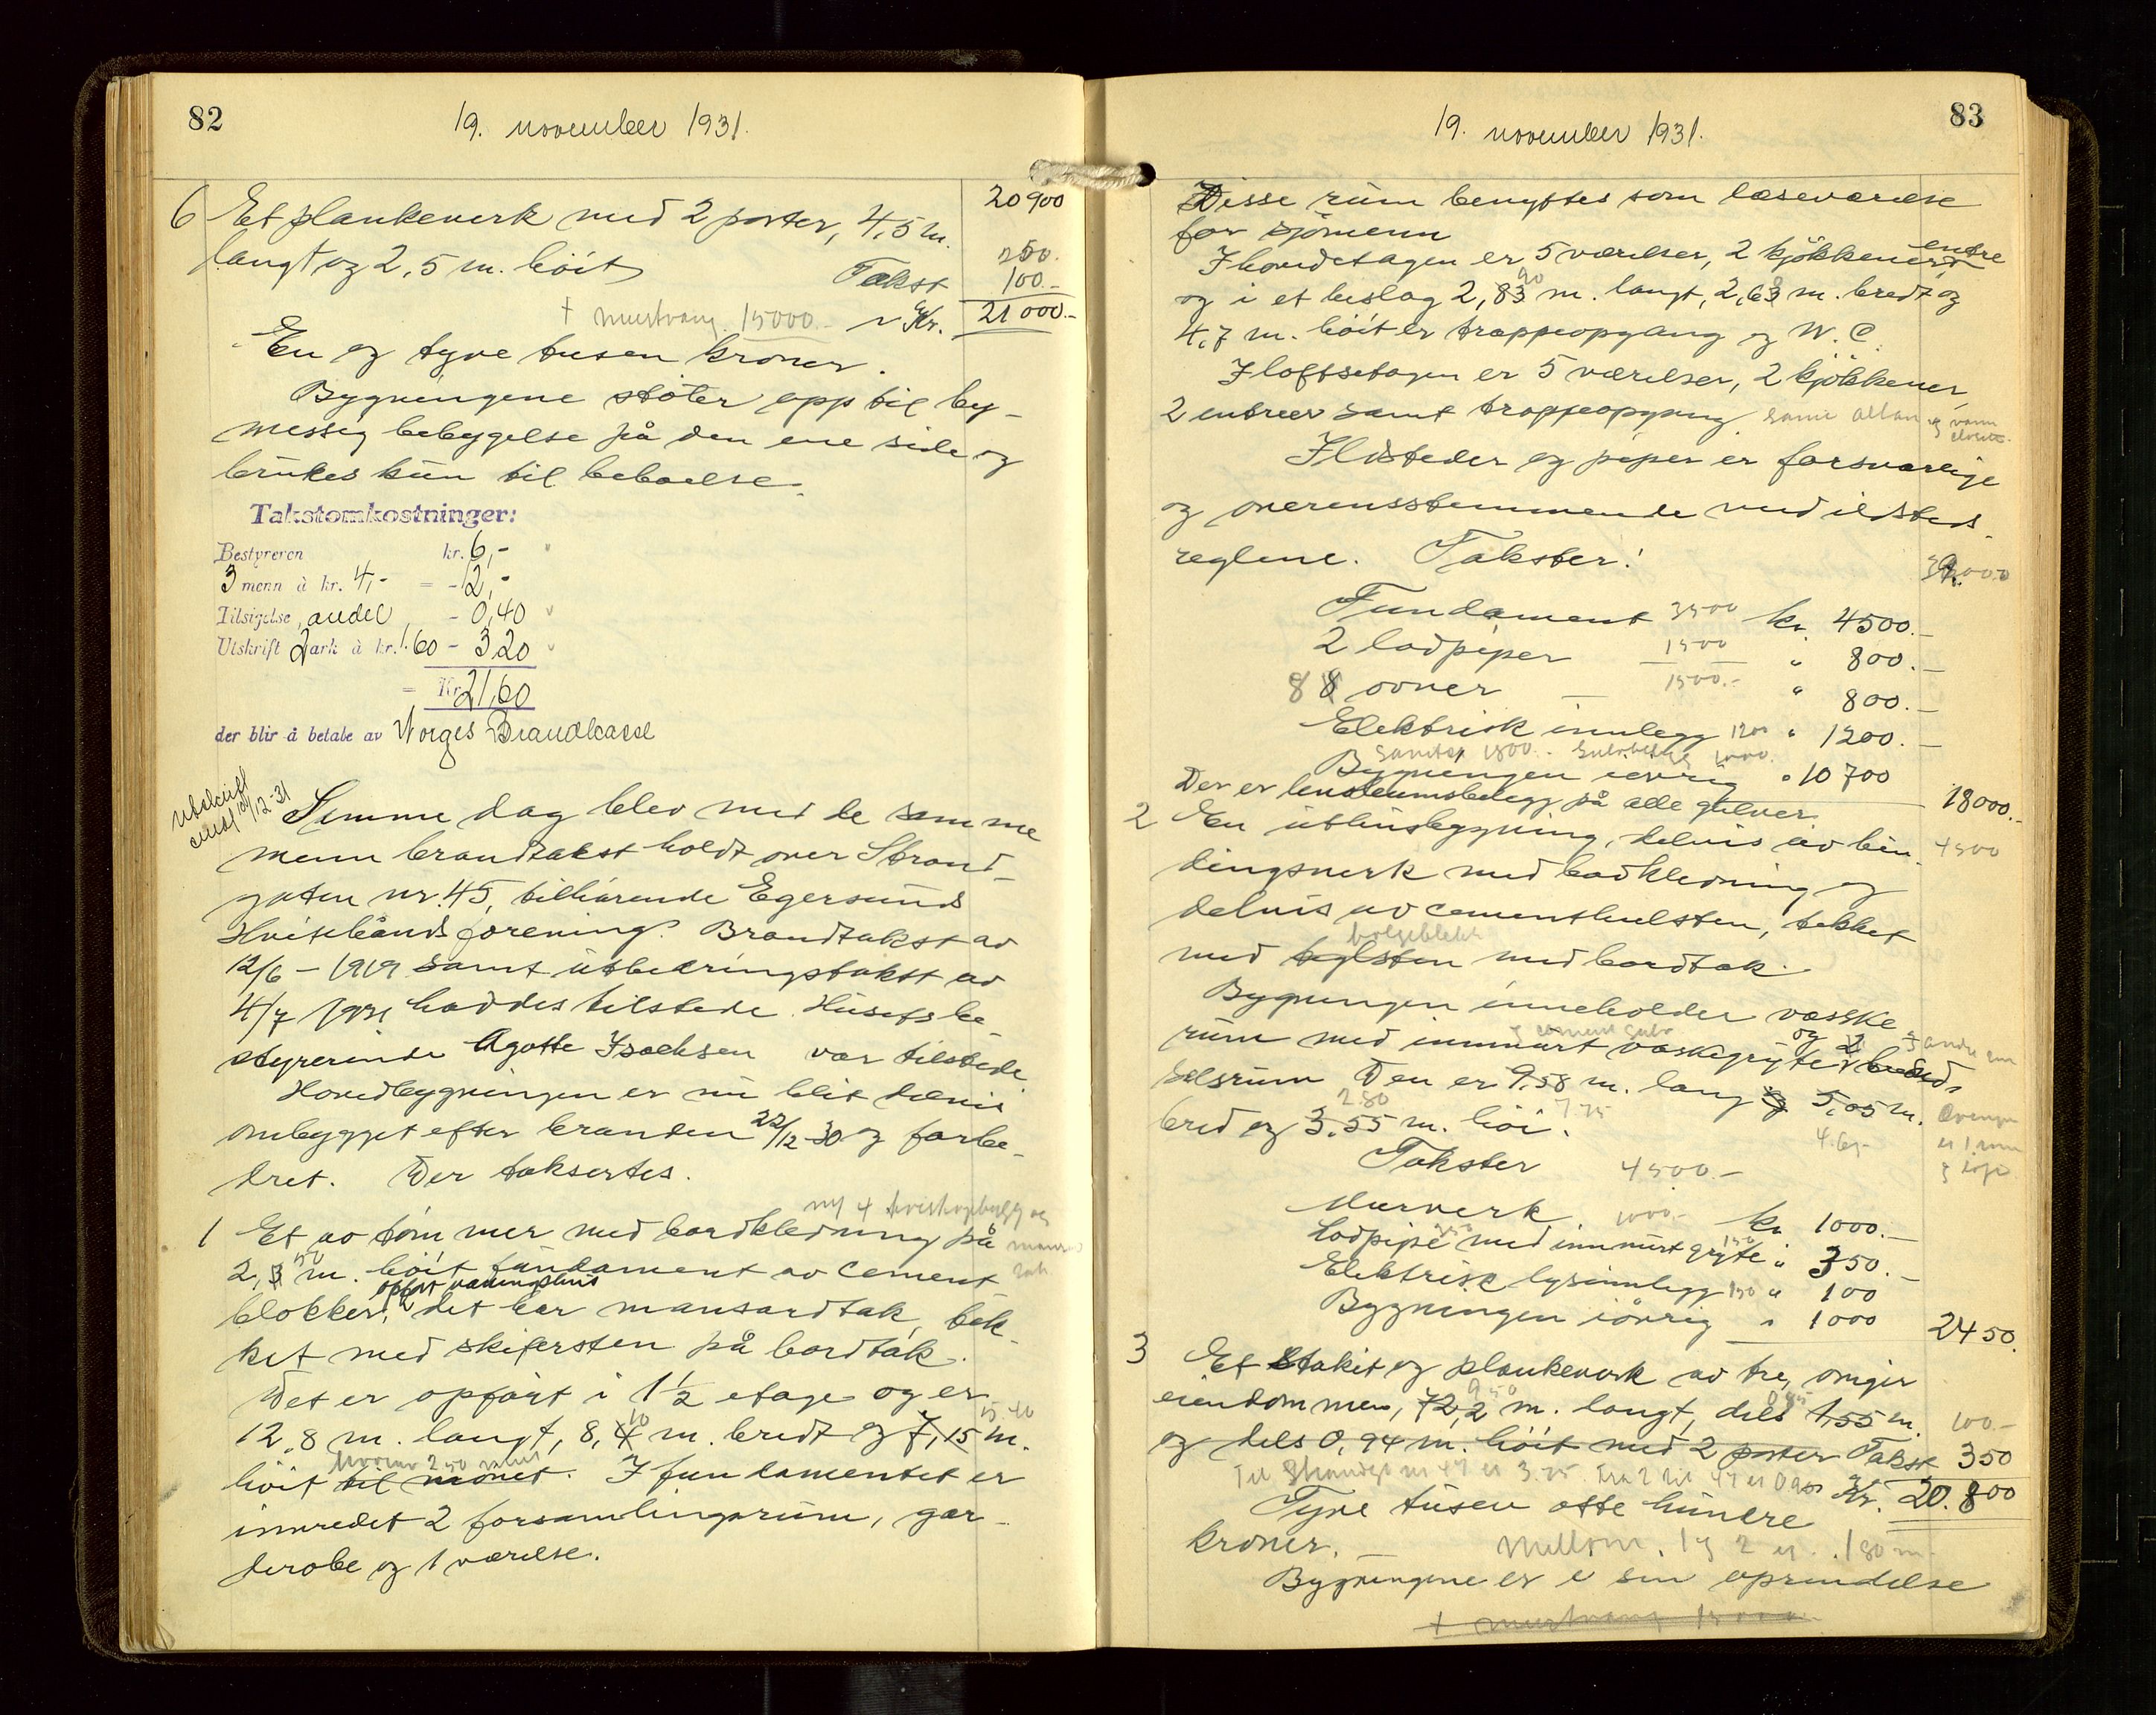 82
19. november 1931.
20900
6 Et plankeverk med 2 porter, 4,5 m.
langt og 2,5 m. høit Takst 100.-
+ murtvang 15000.- Kr. 21000.-
En og tyve tusen kroner.
Bygningene støter opp til by-
messig bebygelse på den ene side og
brukes kun til beboelse.
Takstomkostninger:
Bestyreren kr. 6,-
3 menn à kr. 4,- = - 12,-
Tilsigelse, andel - 0,40
Utskrift 2 ark à kr. 1.60 - 3.20
= Kr. 21,60
der blir å betale av Norges Brandkasse
Utskrift
12-31
Samme dag blev med de samme
menn brandtakst holdt over Strand-
gaten nr. 45, tilhørende Egersunds
Hvitebåndsforening. Brandtakst av
12/6 - 1919 samt utbedringstakst av
4/7 1931 haddes tilstede. Husets be-
styrerinde Agotte Isachsen var tilstede.
Hovedbygningen er nu blit delvis
ombygget efter branden 22/12-30 og forbe-
dret. Der taksertes.
1 Et av tømmer med bordkledning på
2,3 m. høit fundament av cement
opført våningshus
blokker, det har mansardtak, tek-
ket med skifersten på bordtak.
Det er opført i 1½ etage og er
12,8 m. langt, 8,4 m. bredt og 7,15 m.
høit til mønet. I fundamentet er
innredet 2 forsamlingsrum, gar-
derobe og 1 værelse.
83
19. november 1931.
Disse rum benyttes som læseværelse
for sjømenn
I hovedetagen er 5 værelser, 2 kjøkkener, entre
og i et beslag 2,83 m. langt, 2,63 m. bredt og
4,7 m. høit er trappeopgang og W.C.
I loftsetagen er 5 værelser, 2 kjøkkener,
2 entreer samt trappeopgang. samt altan og
Ildsteder og piper er forsvarlige
og overensstemmende med ildsteds-
reglene. Takster:
Fundament 3500 kr. 4500.-
2 lodpiper 1500 " 800.-
8 ovner 1500.- " 800.-
Elektrisk innlegg 1200 " 1200.-
Bygningen iøvrig " 10700
Der er linoleumsbelegg på alle gulver 18000.-
2 En uthusbygning, delvis av bin- 4500
dingsverk med bordkledning og
delvis av cementhulsten, tekket
bølgeblekk
med teglsten med bordtak.
Bygningen inneholder vaske-
og cement gulv
rum med innmurt vaskegryte og 2 brend-
selsrum. Den er 9,58 m. lang og 5,05 m.
2.80
bred og 3,55 m. høi.
Takster 4500.-
Murverk 1000.- kr. 1000.-
Lodpipe med innmurt gryte " 350.-
Elektrisk lysinnlegg 150 " 100
Bygningen iøvrig " 1000 2450.
3 Et stakit og plankeverk av tre, omgir
eiendommen, 72,2 m. langt, dels 1,55 m. 100.-
og dels 0,94 m. høit med 2 porter Takst 350
Til Strandgt nr 47 er 3.75. Fra 2 til 47 er Kr. 20.800
Tyve tusen otte hundre
kroner. - Mellom 1 og 2 er 1.80 m.
Bygningene er i sin oprindelse
+ murtvang 15000.-